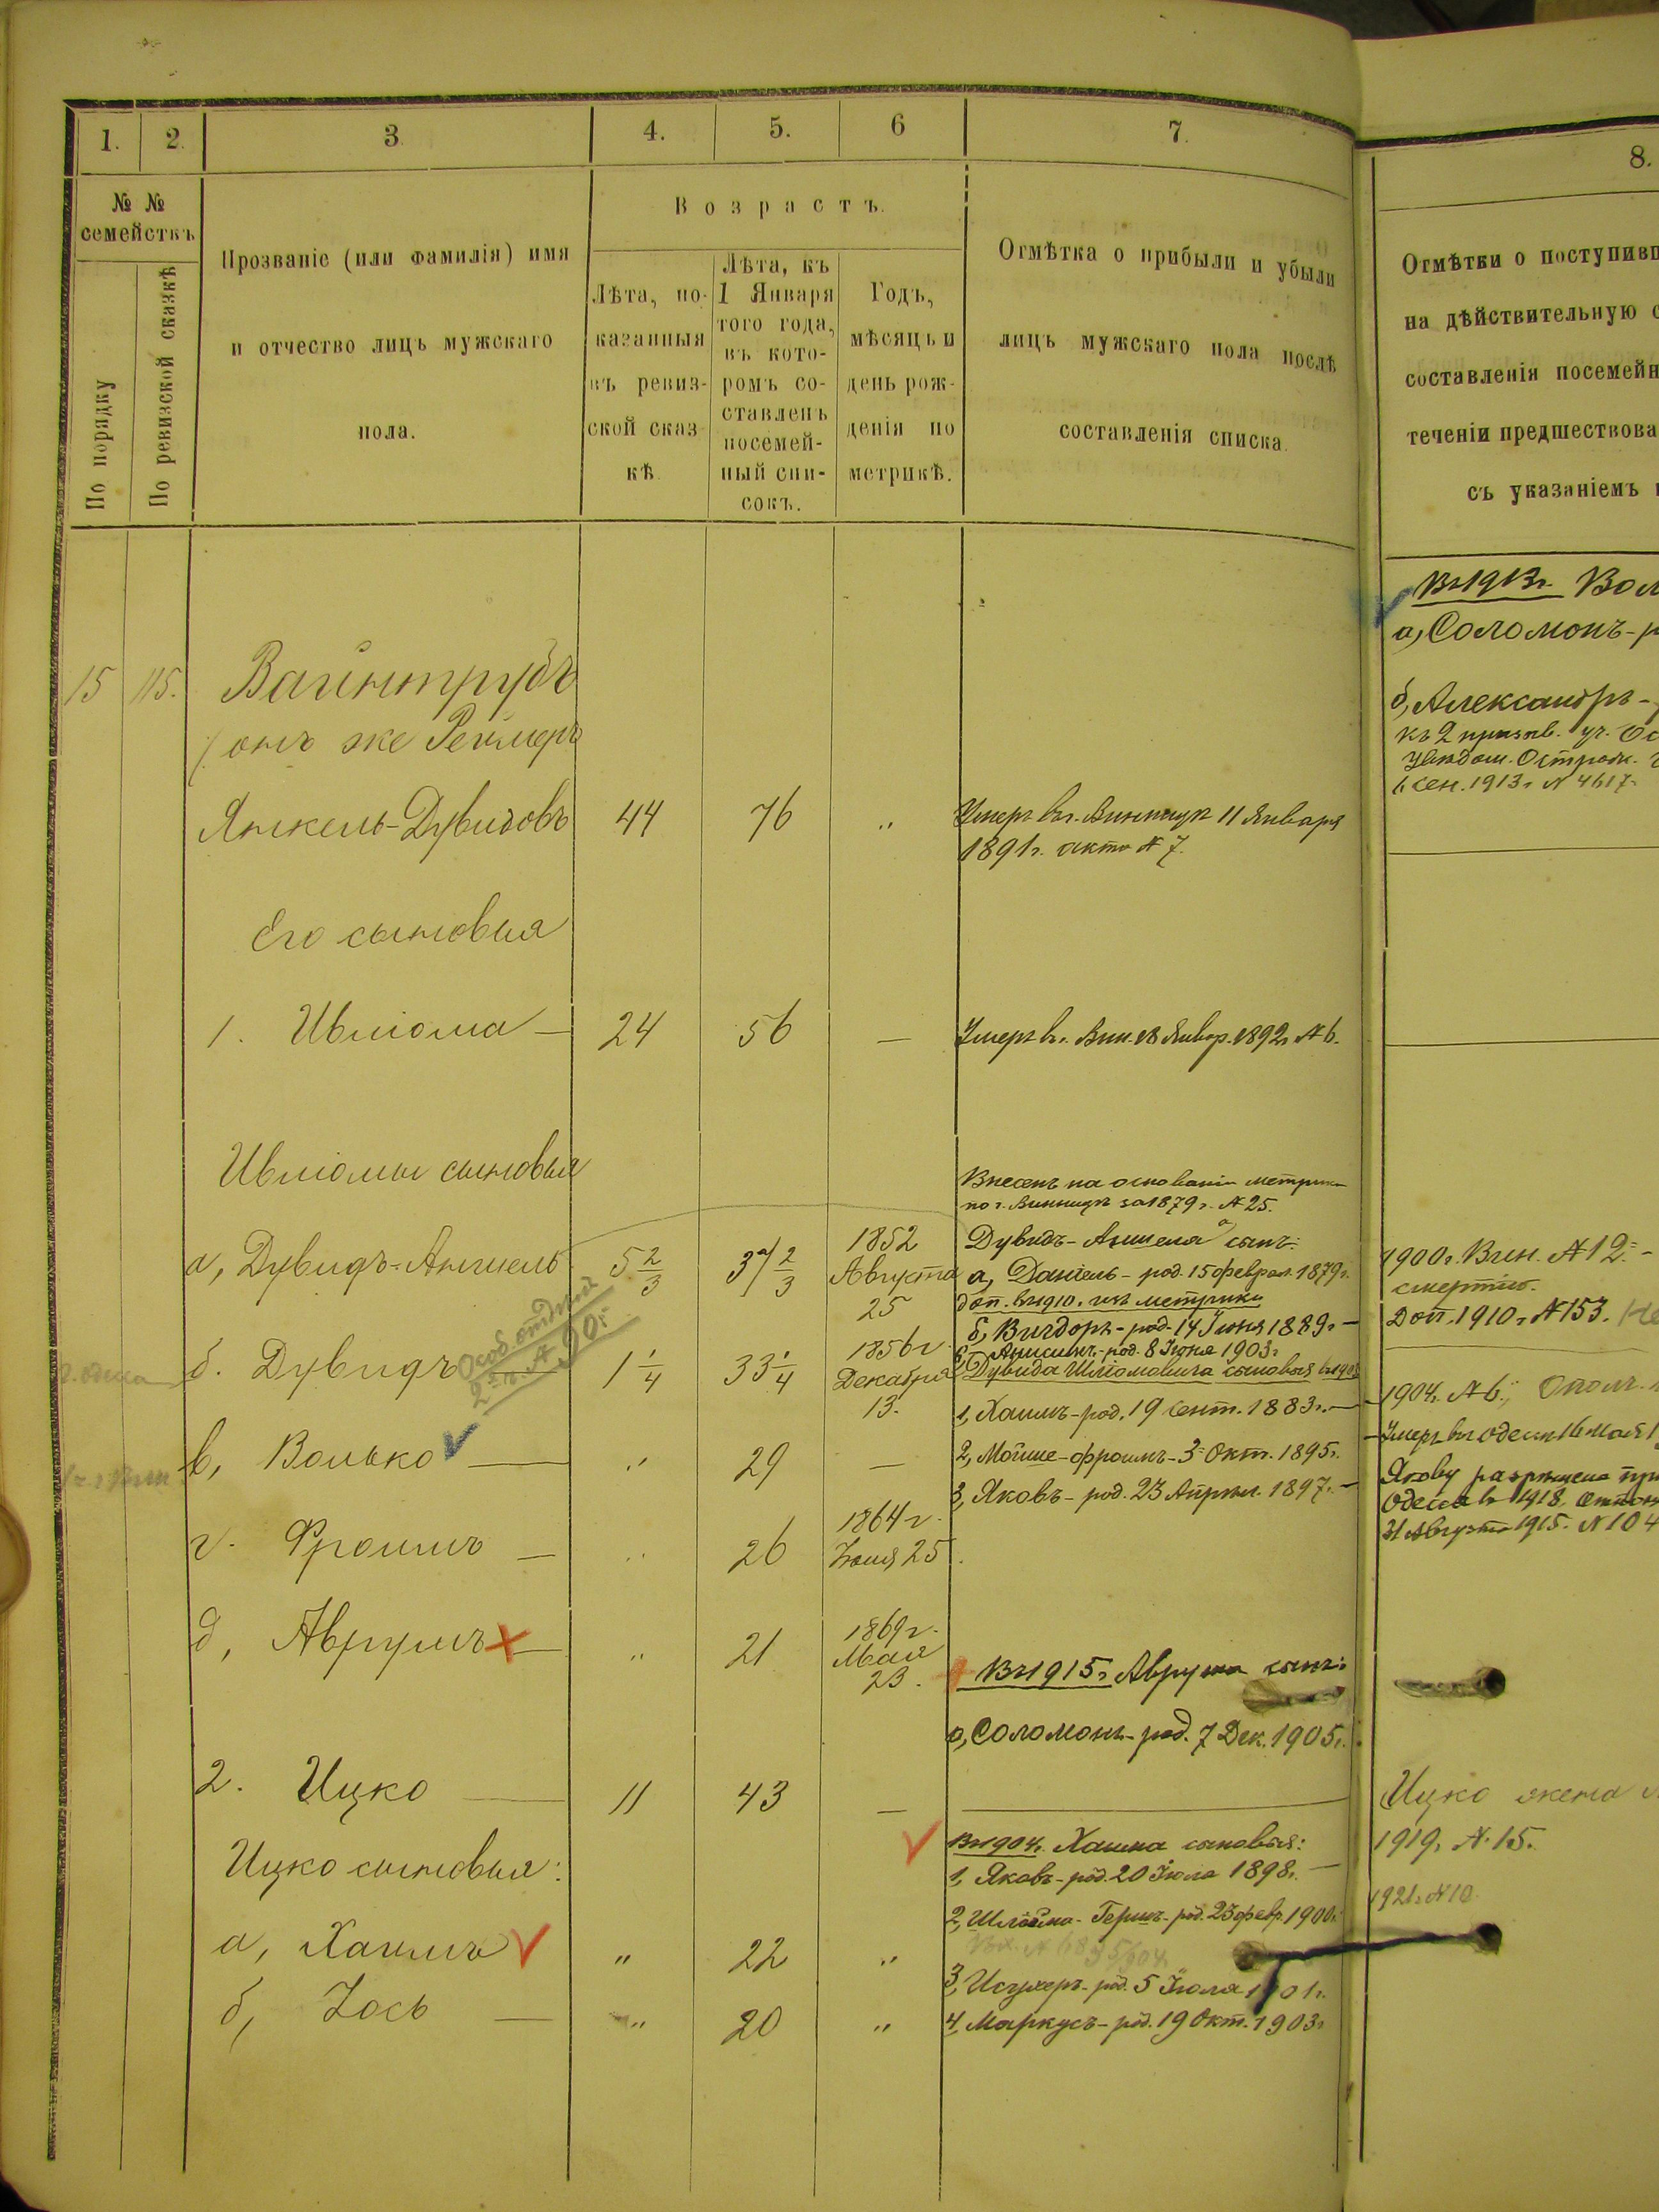 1.
2.
3
4.
5.
6
7.
8.
№ №
семействъ
По порядку
По ревизской сказкѣ
Прозваніе (или фамилія) имя
и отчество лицъ мужскаго
пола.
Возрастъ.
Лѣта, по-
казанныя
въ ревиз-
ской сказ-
кѣ.
Лѣта, къ
1 Января
того года,
въ кото-
ромъ со-
ставленъ
посемей-
ный спи-
сокъ.
Годъ,
мѣсяцъ и
день рож-
денія по
метрикѣ.
Отмѣтка о прибыли и убыли
лицъ мужскаго пола послѣ
составленія списка.
Отмѣтки о поступивш
на дѣйствительную с
составленія посемейн
теченіи предшествова
съ указаніемъ
Въ 1913 г. Вол
а, Соломонъ - р
б, Александръ -
къ 2 призыв. уч. Ос
Увѣдом. Острож.
6 сен. 1913 г. № 4617
15 115. Вайнтрубъ
(онъ же Реймеръ
Янкель-Дувидовъ 44 76 „ Умеръ въ г. Винницѣ 11 Января
1891 г. актъ № 7.
Его сыновья
1. Шліома — 24 56 — Умеръ въ г. Вин. 18 Январ. 1892 г. № 6.
Шліомы сыновья
Внесенъ на основаніи метрики
по г. Винницѣ за 1879 г. № 25.
Дувидъ-Аншеля сынъ:
а, Дувидъ-Аншель 5 2/3 37 2/3 1852
Августа
25
а, Даніель - род. 15 феврал. 1879 г.
доп. въ 1910 г. изъ метрики
б, Вигдоръ - род. 14 Іюня 1889 г. —
в, Анисимъ - род. 8 Іюня 1903 г.
1900 г. Вин. № 12 -
смертію.
Доп. 1910 г. № 153.
Особ. отдѣлъ
б. Дувидъ 1 1/4 33 1/4 1856 г.
Декабря
13.
Дувида Шліомовича сыновья
1, Хаимъ - род. 19 Сент. 1883 г. —
2, Мойше-Фроимъ - 3 Окт. 1895 г.
3, Яковъ - род. 23 Апрѣл. 1897 г. —
1904 г. № 6.
Умеръ въ г. Одессѣ 16 Мая
Якову разрѣшена
Одесса въ 1918
31 Августа 1915 г. № 104
в, Волько — „ 29 —
г. Фроимъ — „ 26 1864 г.
Іюня 25.
д, Аврумъ — „ 21 1869 г.
Мая
23.
Въ 1915 г. Аврума сынъ:
а, Соломонъ - род. 7 Дек. 1905 г.
2. Ицко — 11 43 —
Ицко жена
Ицко сыновья:
Въ 1904 г. Хаима сыновья:
1, Яковъ - род. 20 Іюля 1898 г. —
2, Шлойма-Гершъ - род. 23 февр. 1900 г.
3, Исухеръ - род. 5 Іюля 1901 г.
4, Маркусъ - род. 19 Окт. 1903 г.
1919 г. № 15.
1921 г. № 10.
а, Хаимъ „ 22 „
б, Іось — „ 20 „